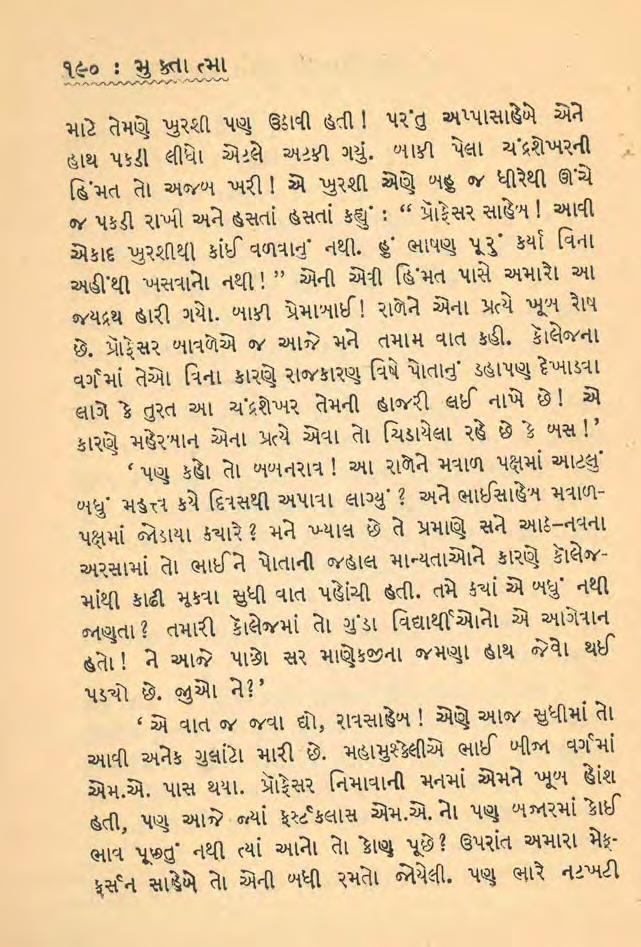 ૧૯૦ : મુક્તાત્મા
માટે તેમણે ખુરશી પણ ઉડાવી હતી! પરંતુ અપ્પાસાહેબે એને
હાથ પકડી લીધો એટલે અટકી ગયું. બાકી પેલા ચંદ્રશેખરની
હિંમત તો અજબ ખરી! એ ખુરશી એણે બહુ જ ધીરેથી ઊંચે
જ પકડી રાખી અને હસતાં હસતાં કહ્યું : “ પ્રૉફેસર સાહેબ! આવી
એકાદ ખુરશીથી કાંઈ વળવાનું નથી. હું ભાષણ પૂરું કર્યા વિના
અહીંથી ખસવાનો નથી!” એની એવી હિંમત પાસે અમારો આ
જયદ્રથ હારી ગયો. બાકી પ્રેમાબાઈ! રાળેને એના પ્રત્યે ખૂબ રોષ
છે. પ્રૉફેસર બાવળેએ જ આજે મને તમામ વાત કહી. કૉલેજના
વર્ગમાં તેઓ વિના કારણે રાજકારણ વિષે પોતાનું ડહાપણ દેખાડવા
લાગે કે તુરત આ ચંદ્રશેખર તેમની હાજરી લઈ નાખે છે! એ
કારણે મહેરબાન એના પ્રત્યે એવા તો ચિડાયેલા રહે છે કે બસ!’
‘પણ કહો તો બબનરાવ! આ રાળેને મવાળ પક્ષમાં આટલું
બધું મહત્ત્વ કયે દિવસથી અપાવા લાગ્યું? અને ભાઈસાહેબ મવાળ-
પક્ષમાં જોડાયા ક્યારે? મને ખ્યાલ છે તે પ્રમાણે સને આઠ–નવના
અરસામાં તો ભાઈને પોતાની જહાલ માન્યતાઓને કારણે કૉલેજ-
માંથી કાઢી મૂકવા સુધી વાત પહોંચી હતી. તમે ક્યાં એ બધું નથી
જાણતા? તમારી કૉલેજમાં તો ગુંડા વિદ્યાર્થીઓનો એ આગેવાન
હતો! ને આજે પાછો સર માણેકજીના જમણા હાથ જેવો થઈ
પડ્યો છે. જુઓ ને?’
‘એ વાત જ જવા દ્યો, રાવસાહેબ! એણે આજ સુધીમાં તો
આવી અનેક ગુલાંટો મારી છે. મહામુશ્કેલીએ ભાઈ બીજા વર્ગમાં
એમ.એ. પાસ થયા. પ્રૉફેસર નિમાવાની મનમાં એમને ખૂબ હોંશ
હતી, પણ આજે જ્યાં ફર્સ્ટકલાસ એમ.એ.નો પણ બજારમાં કોઈ
ભાવ પૂછતું નથી ત્યાં આનો તો કોણ પૂછે? ઉપરાંત અમારા મેક્-
ફર્સન સાહેબે તો એની બધી રમતો જોયેલી. પણ ભારે નટખટી